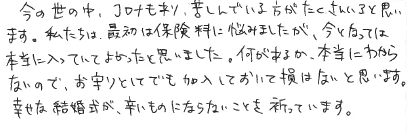 今の世の中、コロナも来り、苦しんでいる方がたくさんいると思い
ます。私たちは、最初は保険料に悩みましたが、今となっては
本当に入っていてよかったと思いました。何があるか、本当にわから
ないので、お守りとしてでも加入しておいて損はないと思います。
幸せな結婚式が、辛いものにならないことを祈っています。